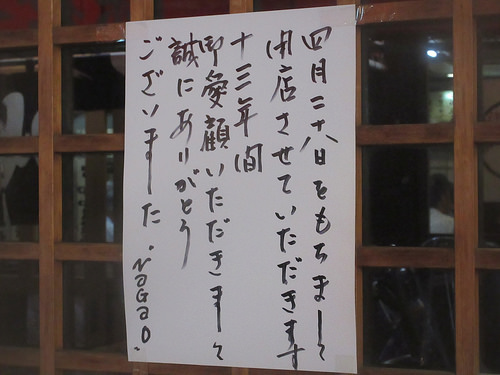 四月二十八日をもちまして
閉店させていただきます
十三年間
御愛顧いただきまして
誠にありがとう
ございました。
NAGAO.